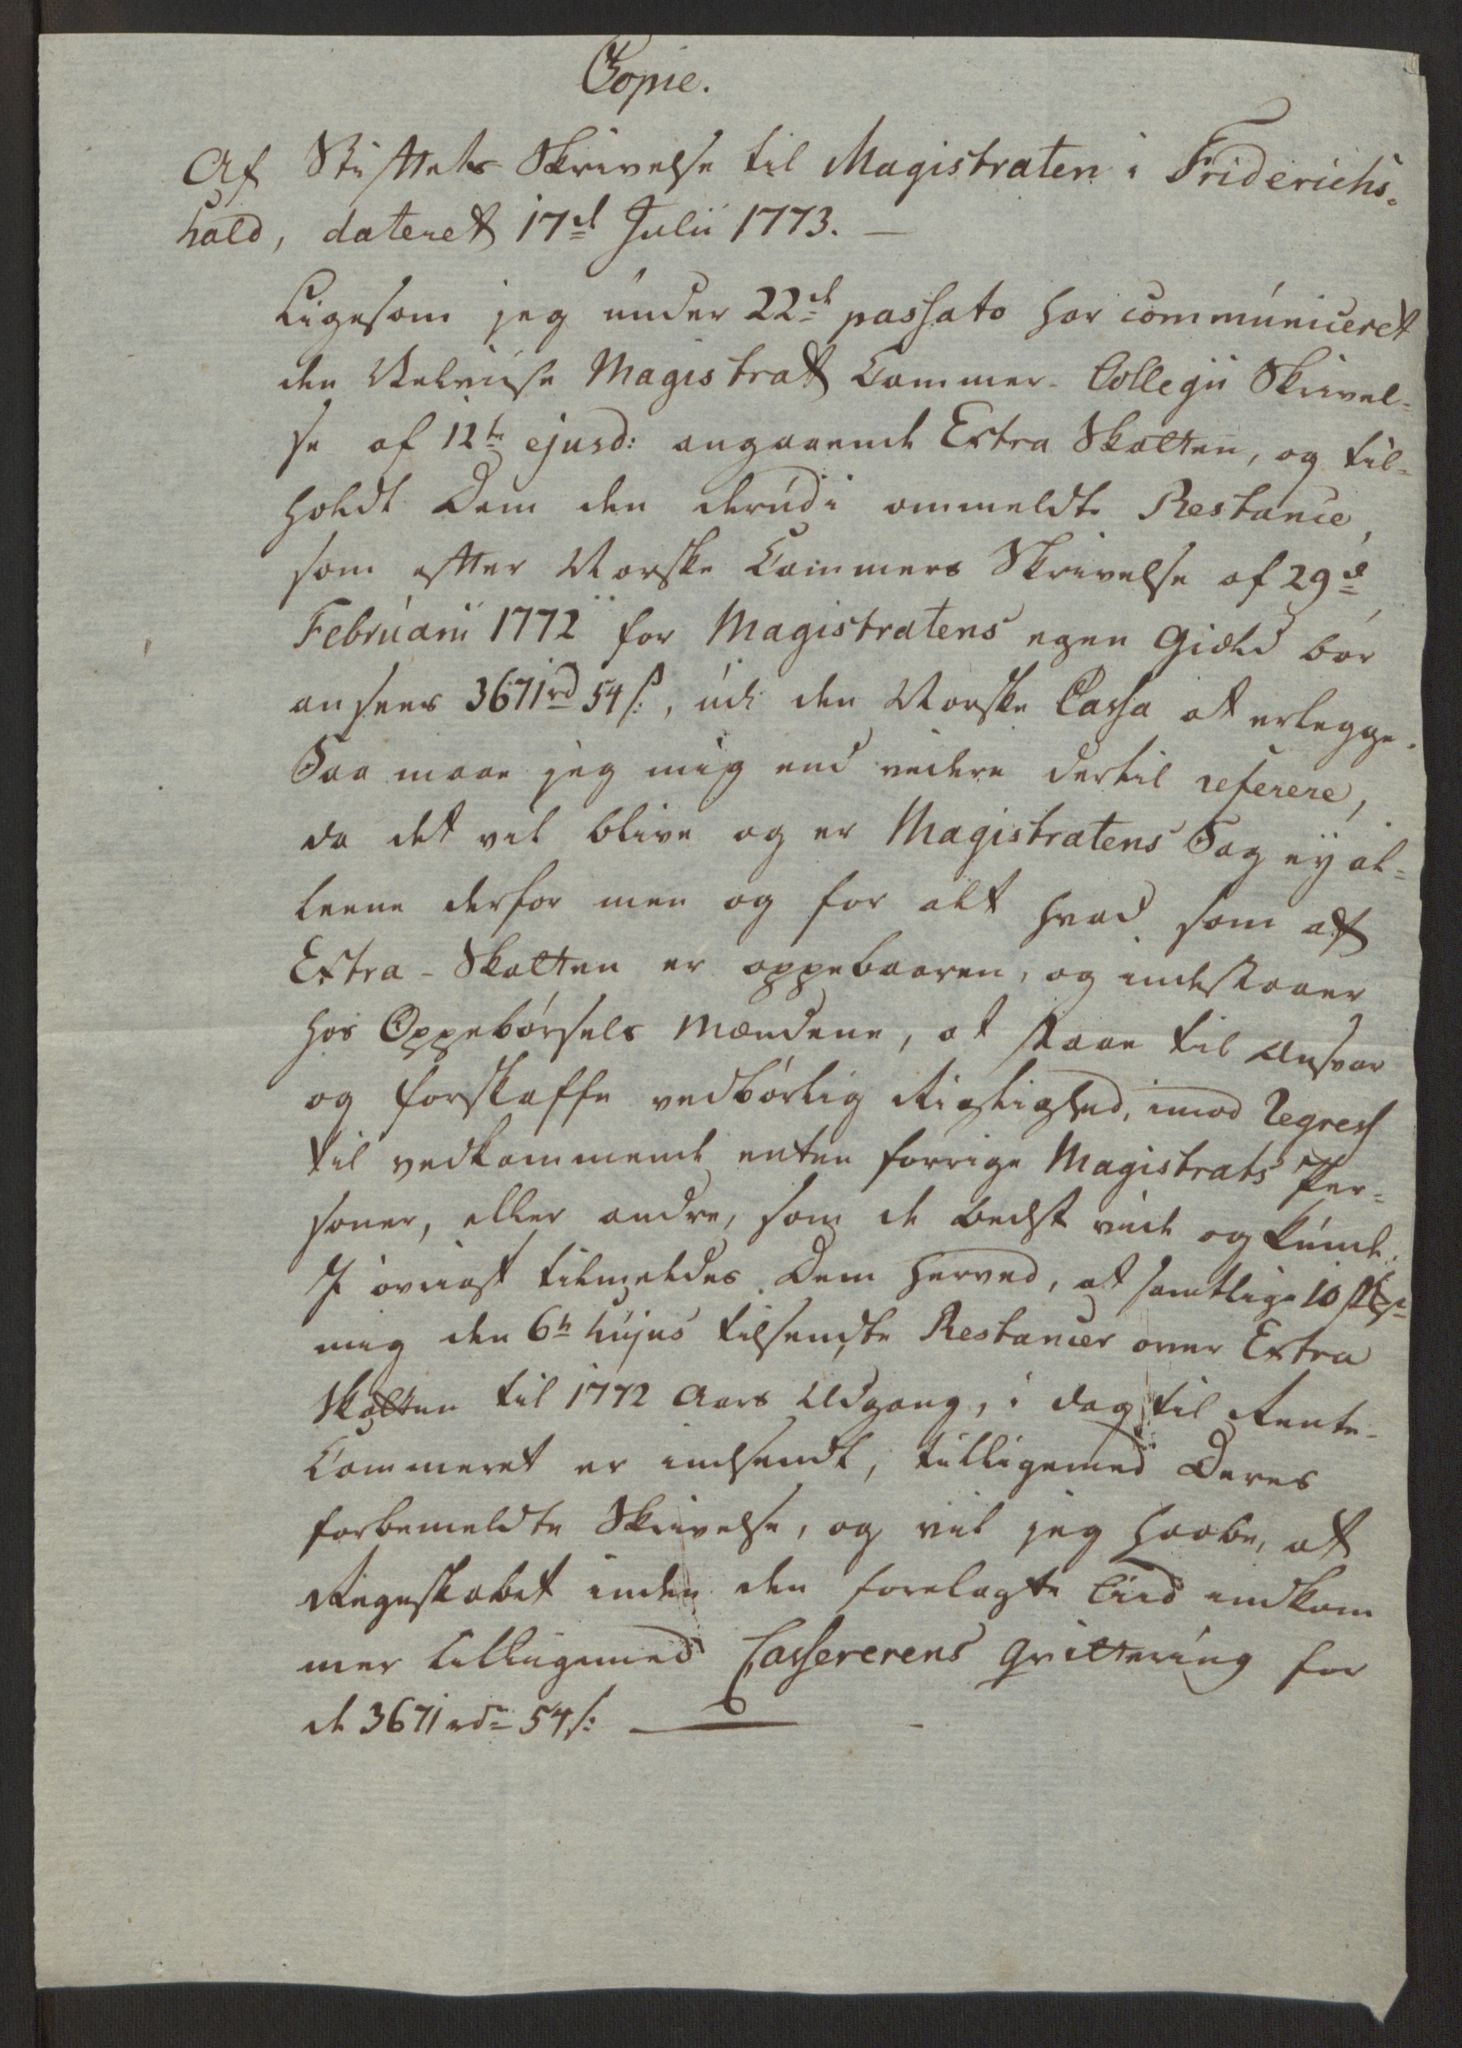 Copie.
Af Stiftets Skrivelse til Magistraten i Friderichs-
hald, dateret 17d Julii 1773. —
Ligesom jeg under 22d passato har communiceret
den Velviise Magistrat Cammer-Collegii Skrivel-
se af 12te ejusd: angaaende Extra Skatten, og til-
holdt Dem den derudi ommeldte Restance,
som efter Norske Cammers Skrivelse af 29d
Februarii 1772 for Magistratens egen Gield bør
ansees 3671rd 54s:, udi den Norske Cassa at erlegge.
Saa maae jeg mig end videre dertil referere,
da det vil blive og er Magistratens Sag ey al-
leene derfor men og for alt hvad som af
Extra-Skatten er oppebaaren, og indestaaer
hos Oppebørsels Mændene, at staae til Ansvar
og forskaffe vedbørlig Rigtighed, imod Regress
til vedkommende enten forrige Magistrats Per-
soner, eller andre, som de bedst viide og kunde.
I øvrigt tilmeldes Dem herved, at samtlige 10 st
mig den 6te hujus tilsendte Restancer over Extra
Skatten til 1772 Aars Udgang, i dag til Rente-
Cammeret er indsendt, tilligemed Deres
forbemeldte Skrivelse, og vil jeg haabe, at
Regnskabet inden den forelagte Tiid indkom
mer tilligemed Cassererens Qvittering for
de 3671rd 54s: